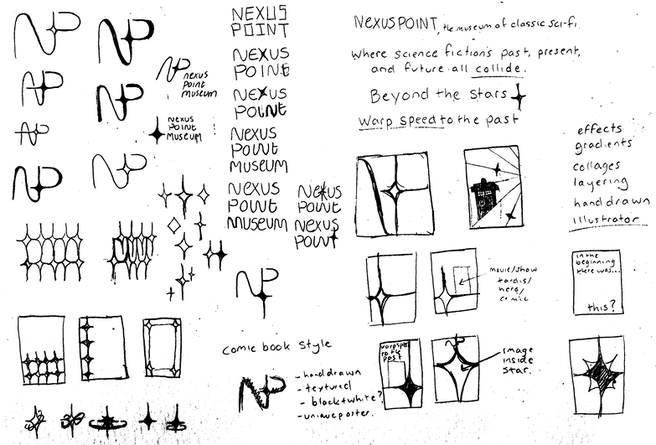 NEXUS
POINT
NEXUS
POINt
NEXUS
POINt
NEXUS
POINT
MUSEUM
NEXUS
POINT
MUSEUM
NEXUS
POINT
NEXUS
POINT
NP
nexus
point
museum
NEXUS
POINT
MUSEUM
NP
Comic book style
- hand drawn
- textured
- black + white?
- unique poster.
NEXUS POINT, the museum of classic sci-fi.
where science fiction's past, present,
and future all collide.
Beyond the stars
Warp speed to the past
effects
gradients
collages
layering
hand drawn
illustrator
movie/show
tardis/
hero/
comic
in the
beginning
there was...
this?
warp speed
to the
past
image
inside
star.